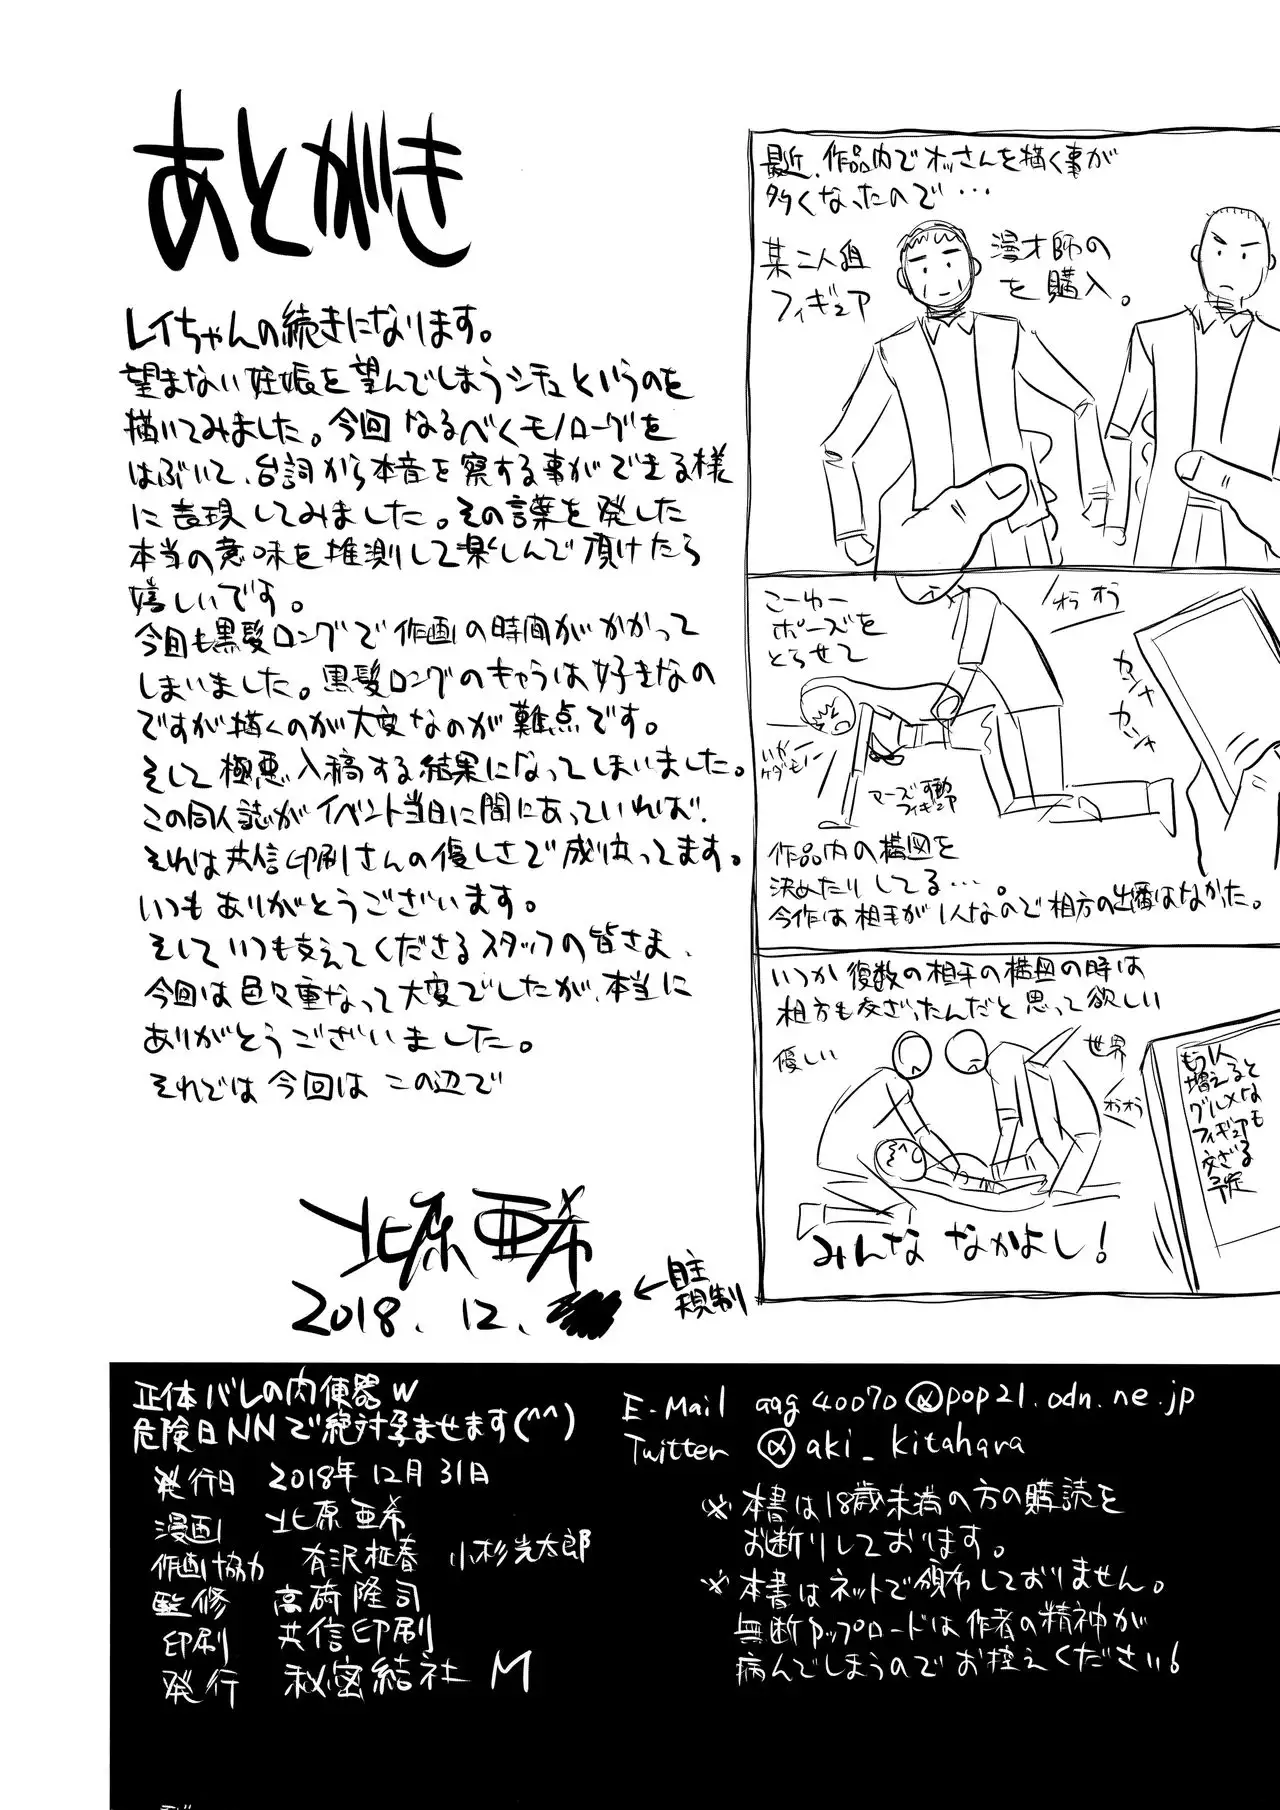 あとがき
レイちゃんの続きになります。
望まない妊娠を望んでしまうシチュというのを
描いてみました。今回なるべくモノローグを
はぶいて、台詞から本音を察する事ができる様
に表現してみました。その言葉を発した
本当の意味を推測して楽しんで頂けたら
嬉しいです。
今回も黒髪ロングで作画の時間がかかって
しまいました。黒髪ロングのキャラは好きなの
ですが描くのが大変なのが難点です。
そして極悪入稿する結果になってしまいました。
この同人誌がイベント当日に間にあっていれば、
それは共信印刷さんの優しさで成り立ってます。
いつもありがとうございます。
そしていつも支えてくださるスタッフの皆さま、
今回は色々重なって大変でしたが、本当に
ありがとうございました。
それでは今回はこの辺で
北原亜希
2018.12.
←自主
規制
最近、作品内でオッさんを描く事が
多くなったので・・・
某二人組 漫才師の
フィギュア を購入。
こーゆー
ポーズを
とらせて
オラオラ
カシャ
カシャ
いかー
ケダモノー
フィギュア
作品内の構図を
決めたりしてる・・・。
今作は相手が1人なので相方の出番はなかった。
いつか複数の相手の構図の時は
相方も交ざったんだと思って欲しい
優しい
世界
オラオラ
もう1人
増えると
グルメな
フィギュアも
交ざる
予定
みんな なかよし!
正体バレの肉便器w
危険日NNで絶対孕ませます(^^)
発行日 2018年12月31日
漫画 北原亜希
作画協力 有沢柾春 小杉光太郎
監修 高崎隆司
印刷 共信印刷
発行 秘密結社M
E-Mail aag40070@pop21.odn.ne.jp
Twitter @aki_kitahara
※本書は18歳未満の方の購読を
お断りしております。
※本書はネットで頒布しておりません。
無断アップロードは作者の精神が
病んでしまうのでお控えください!